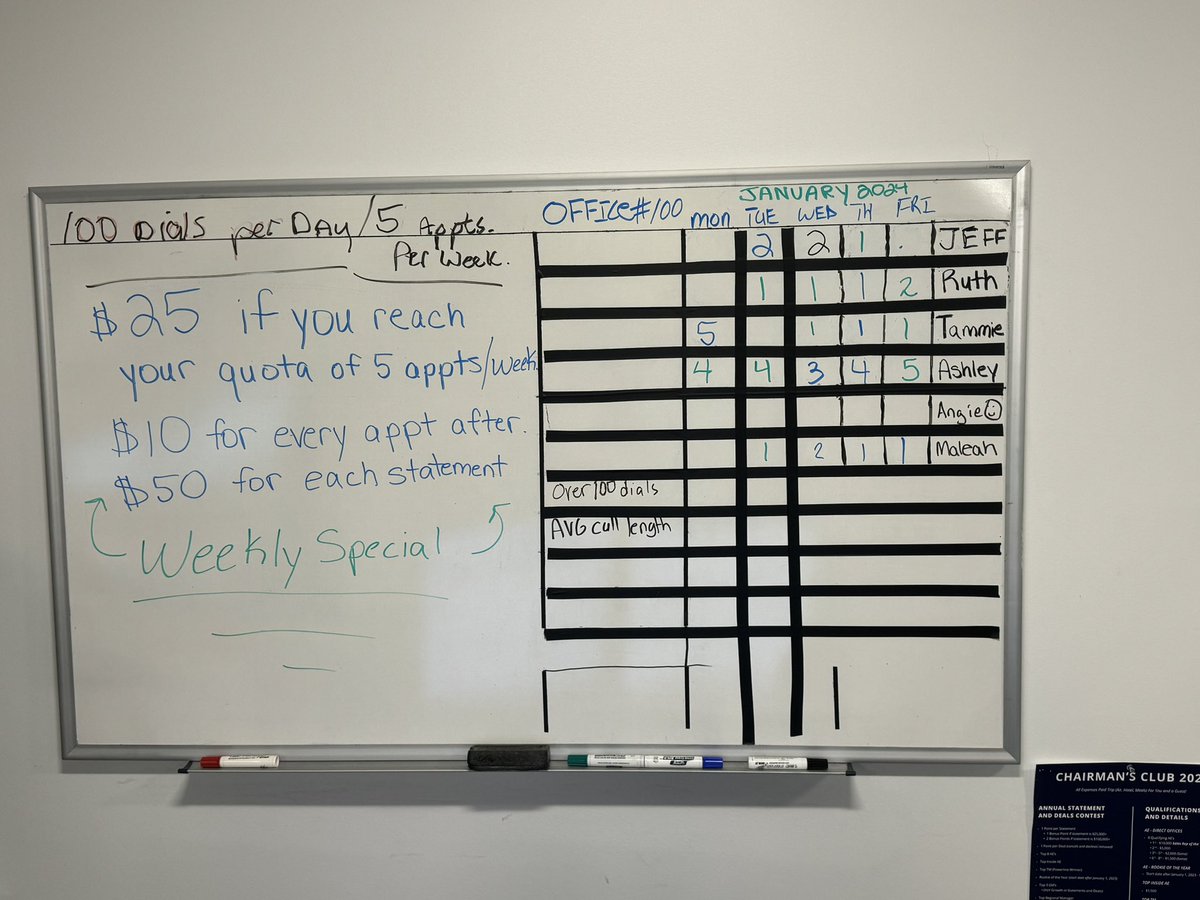 100 Dials per DAy/5 Appts.
Per Week.
$25 if you reach
your quota of 5 appts/week.
$10 for every appt after.
$50 for each statement
Weekly Special
JANUARY 2024
OFFICE#100 mon TUE WED TH FRI
2 2 1 . JEFF
1 1 1 2 Ruth
5 1 1 1 Tammie
4 4 3 4 5 Ashley
Angie☺
1 2 1 1 Maleah
Over 100 dials
AVG call length
CHAIRMAN'S CLUB 202
All Expenses Paid Trip (Air, Hotel, Meals) For You and a Guest
ANNUAL STATEMENT
AND DEALS CONTEST
QUALIFICATIONS
AND DETAILS
AE - DIRECT OFFICES
AE - ROOKIE OF THE YEAR
TOP INSIDE AE